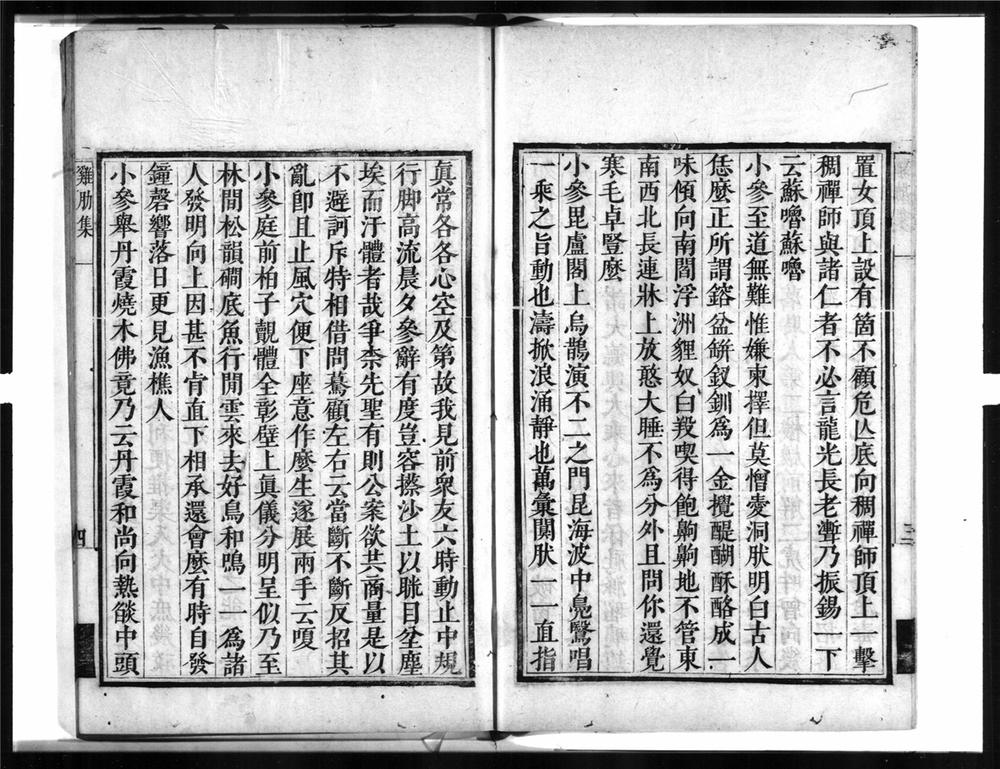 置女頂上設有箇不顧危亾底向稠禪師頂上一擊
稠禪師與諸仁者不必言龍光長老蹔乃振錫一下
云蘇嚕蘇嚕
小參至道無難惟嫌柬擇但莫憎愛洞肰明白古人
恁麼正所謂鎔盆缾釵釧爲一金攪醍醐酥酪成一
味傾向南閻浮洲貍奴白羖喫得飽齁齁地不管東
南西北長連牀上放憨大睡不爲分外且問你還覺
寒毛卓豎麼
小參毘盧閣上烏鵲演不二之門昆海波中鳧鷖唱
一乘之旨動也濤掀浪涌靜也萬彙闃肰一一直指
眞常各各心空及第故我見前衆友六時動止中規
行脚高流晨夕參辭有度豈容撡沙土以聎目坌塵
埃而汙體者哉爭柰先聖有則公案欲共商量是以
不避訶斥特相借問驀顧左右云當斷不斷反招其
亂卽且止風穴便下座意作麼生遂展兩手云嗄
小參庭前柏子覿體全彰壁上眞儀分明呈似乃至
林間松韻磵底魚行閒雲來去好鳥和鳴一一爲諸
人發明向上因甚不肯直下相承還會麼有時自發
鐘磬響落日更見漁樵人
小參舉丹霞燒木佛竟乃云丹霞和尚向熱燄中頭
雞肋集
四